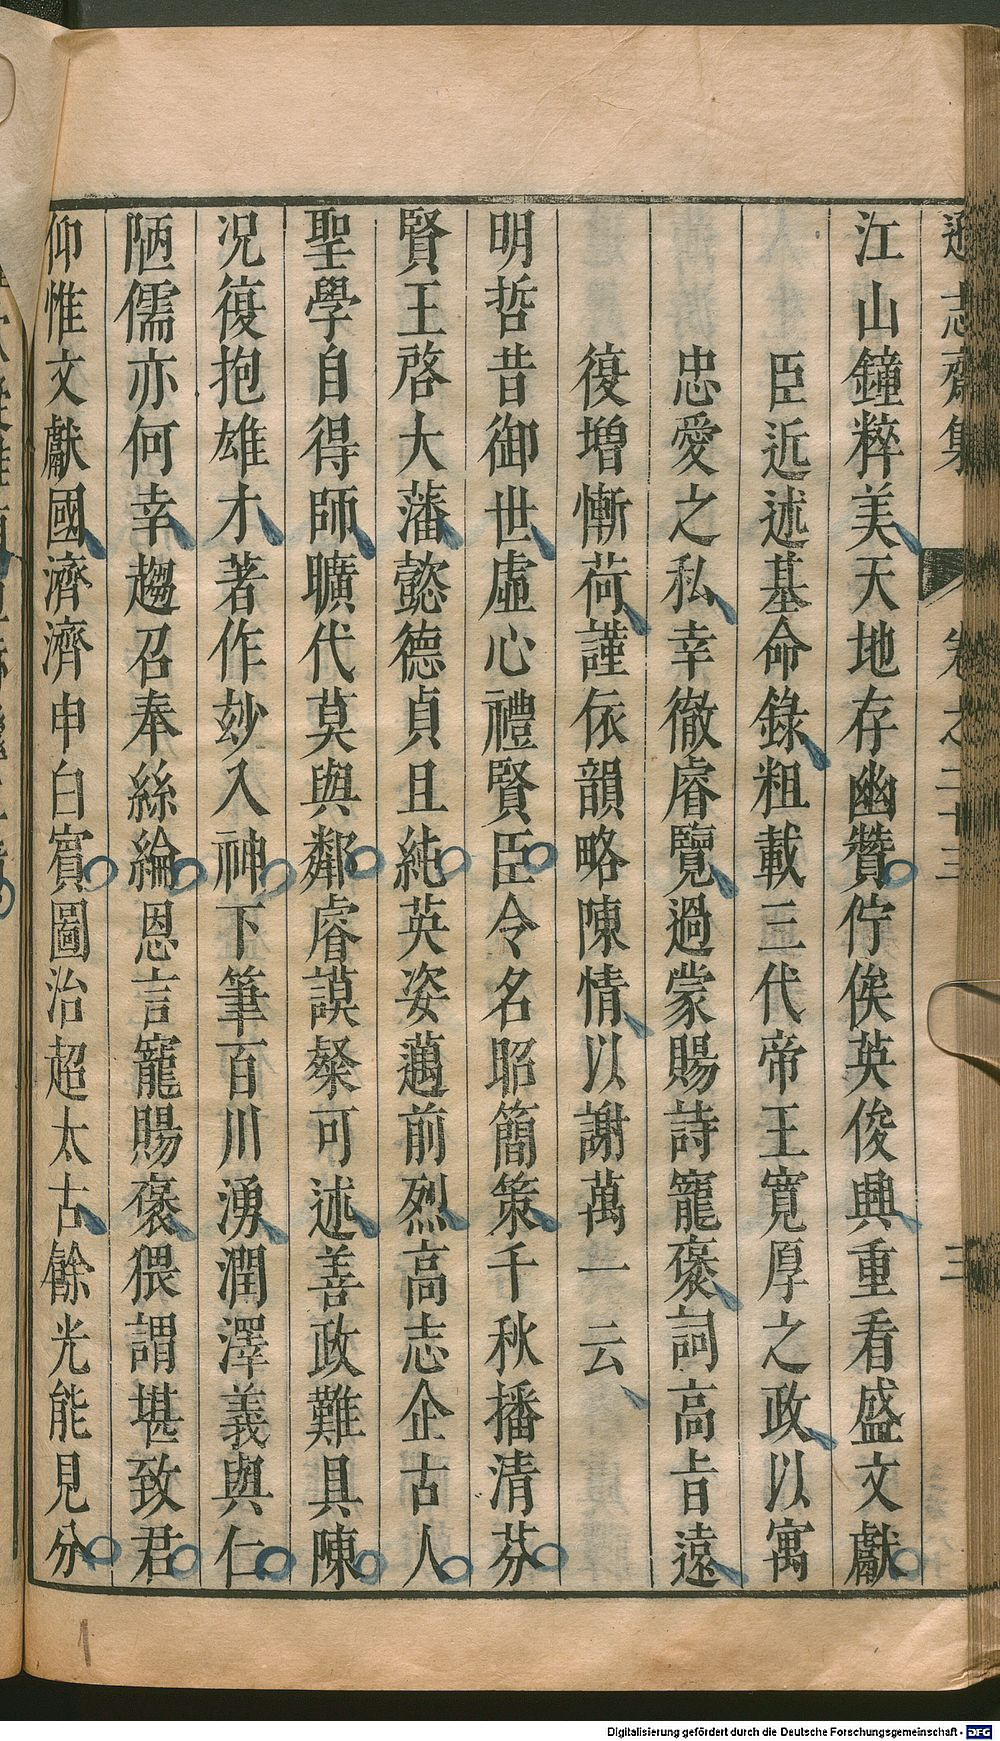 遜志齋集 卷之二十三 三
江山鐘粹美天地存幽贊佇俟英俊興重看盛文獻
臣近述基命錄粗載三代帝王寬厚之政以寓
忠愛之私幸徹睿覽過蒙賜詩寵褒詞高旨遠
復增慚荷謹依韻略陳情以謝萬一云
明哲昔御世虛心禮賢臣令名昭簡策千秋播清芬
賢王啓大藩懿德貞且純英姿邁前烈高志企古人
聖學自得師曠代莫與鄰睿謨粲可述善政難具陳
況復抱雄才著作妙入神下筆百川湧潤澤義與仁
陋儒亦何幸趨召奉絲綸恩言寵賜褒猥謂堪致君
仰惟文獻國濟濟申白賓圖治超太古餘光能見分
Digitalisierung gefördert durch die Deutsche Forschungsgemeinschaft - DFG